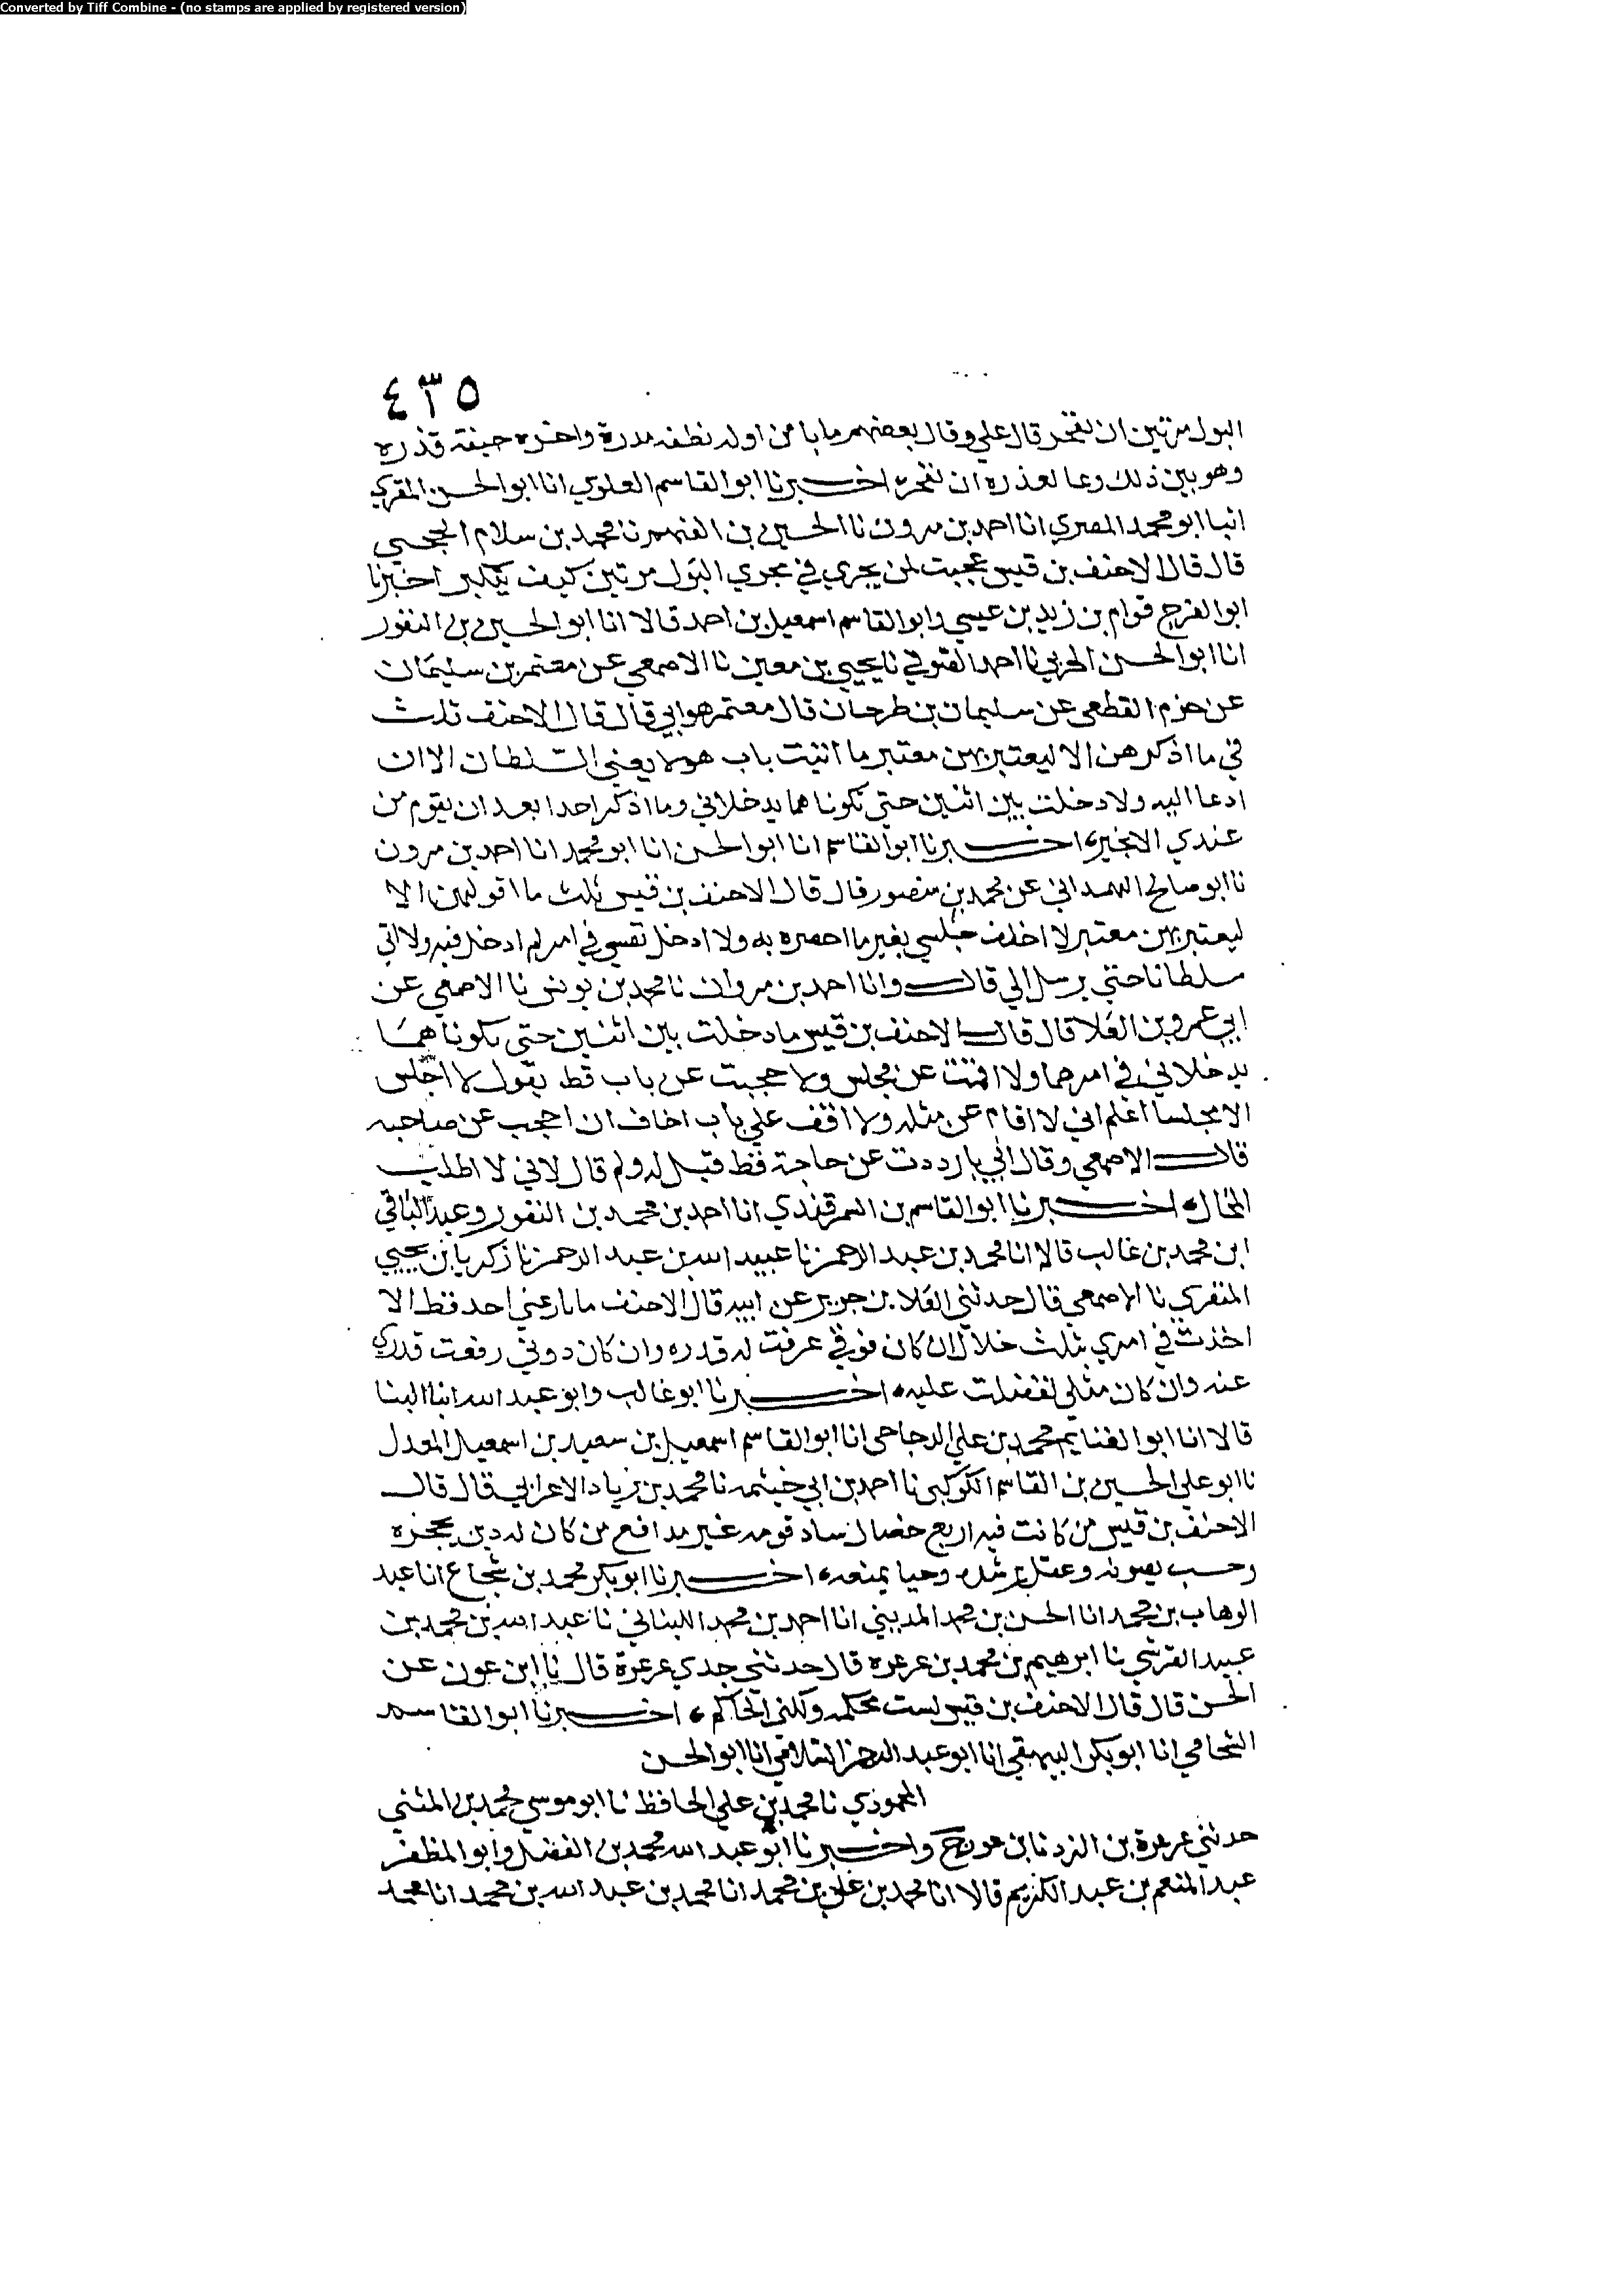 Converted by Tiff Combine - (no stamps are applied by registered version)
٤٣٥
البول مرتين ان يفخر قال علي وقال بعضهم ما با من اوله نطفه مدرة واخره جيفة قذره
وهو بين ذلك وعا لعذره ان يفخره اخبرنا ابو القاسم العلوي انا ابو الحسن المقري
انبا ابو محمد المصري انا احمد بن مرون نا الحسين بن الفهم نا محمد بن سلام الجمحي
قال قال الاحنف بن قيس عجبت لمن يجري في مجري البول مرتين كيف يتكبر اخبرنا
ابو الفرج قوام بن زيد بن عيسي وابو القاسم اسمعيل بن احمد قالا انا ابو الحسين بن النقور
انا ابو الحسن الحربي نا احمد الصوفي نا يحيي بن معين نا الاصمعي عن معتمر بن سليمان
عن حزم القطعي عن سليمان بن طرخان قال معتمر هو ابي قال قال الاحنف ثلث
في ما اذكرهن الا ليعتبر بهن معتبر ما اتيت باب هولا يعني السلطان الا ان
ادعا اليه ولا دخلت بين اثنين حتي يكونا هما يدخلاني وما اذكر احدا بعد ان يقوم من
عندي الا بخير اخبرنا ابو القاسم انا ابو الحسن انا ابو محمد انا احمد بن مرون
نا ابو صالح الهمداني عن محمد بن منصور قال قال الاحنف بن قيس ثلث ما اقولهن الا
ليعتبر بهن معتبر لا اخلف جليسي بغير ما احضره به ولا ادخل نفسي في امر لم ادخل فيه ولا اتي
سلطانا حتي يرسل الي قال وانا احمد بن مروان نا محمد بن يونس نا الاصمعي عن
ابي عمرو بن العلا قال قال الاحنف بن قيس ما دخلت بين اثنين حتي يكونا هما
يدخلاني في امرهما ولا اقمت عن مجلس ولا حجبت عن باب قط يقول لا اجلس
الا مجلسا اعلم اني لا اقام عن مثله ولا اقف علي باب اخاف ان احجب عن صاحبه
قال الاصمعي وقال ابي ما رددت عن حاجة قط قيل له ولم قال لاني لا اطلب
المحال اخبرنا ابو القاسم بن السمرقندي انا احمد بن محمد بن النقور وعبد الباقي
ابن محمد بن غالب قالا انا محمد بن عبد الرحمن نا عبيد الله بن عبد الرحمن نا زكريا بن يحيي
المنقري نا الاصمعي قال حدثني العلا بن جرير عن ابيه قال الاحنف ما نازعني احد قط الا
اخذت في امري بثلث خلال ان كان فوقي عرفت له قدره وان كان دوني رفعت قدري
عنه وان كان مثلي تفضلت عليه اخبرنا ابو غالب وابو عبد الله ابنا البنا
قالا انا ابو الغنايم محمد بن علي الدجاجي انا ابو القاسم اسمعيل بن سعيد بن اسمعيل المعدل
نا ابو علي الحسين بن القاسم الكوكبي نا احمد بن ابي خيثمه نا محمد بن زياد الاعرابي قال قال
الاحنف بن قيس من كانت فيه اربع خصال ساد قومه غير مدافع من كان له دين يحجزه
وحسب يصونه وعقل يرشده وحيا يمنعه اخبرنا ابو بكر محمد بن شجاع انا عبد
الوهاب بن محمد انا الحسن بن محمد المديني انا احمد بن محمد اللبناني نا عبد الله بن محمد بن
عبيد القرشي نا ابرهيم بن محمد بن عرعره قال حدثني جدي عرعرة قال نا ابن عون عن
الحسن قال قال الاحنف بن قيس لست بحكيم ولكني اتحاكم اخبرنا ابو القاسم
الشحامي انا ابو بكر البيهقي انا ابو عبد الرحمن السلامي انا ابو الحسن
المحمودي نا محمد بن علي الحافظ نا ابو موسي محمد بن المثني
حدثني عرعرة بن البرد نا ابن عون ح واخبرنا ابو عبد الله محمد بن الفضل وابو المظفر
عبد المنعم بن عبد الكريم قالا انا محمد بن علي بن محمد انا محمد بن عبد الله بن محمد انا محمد